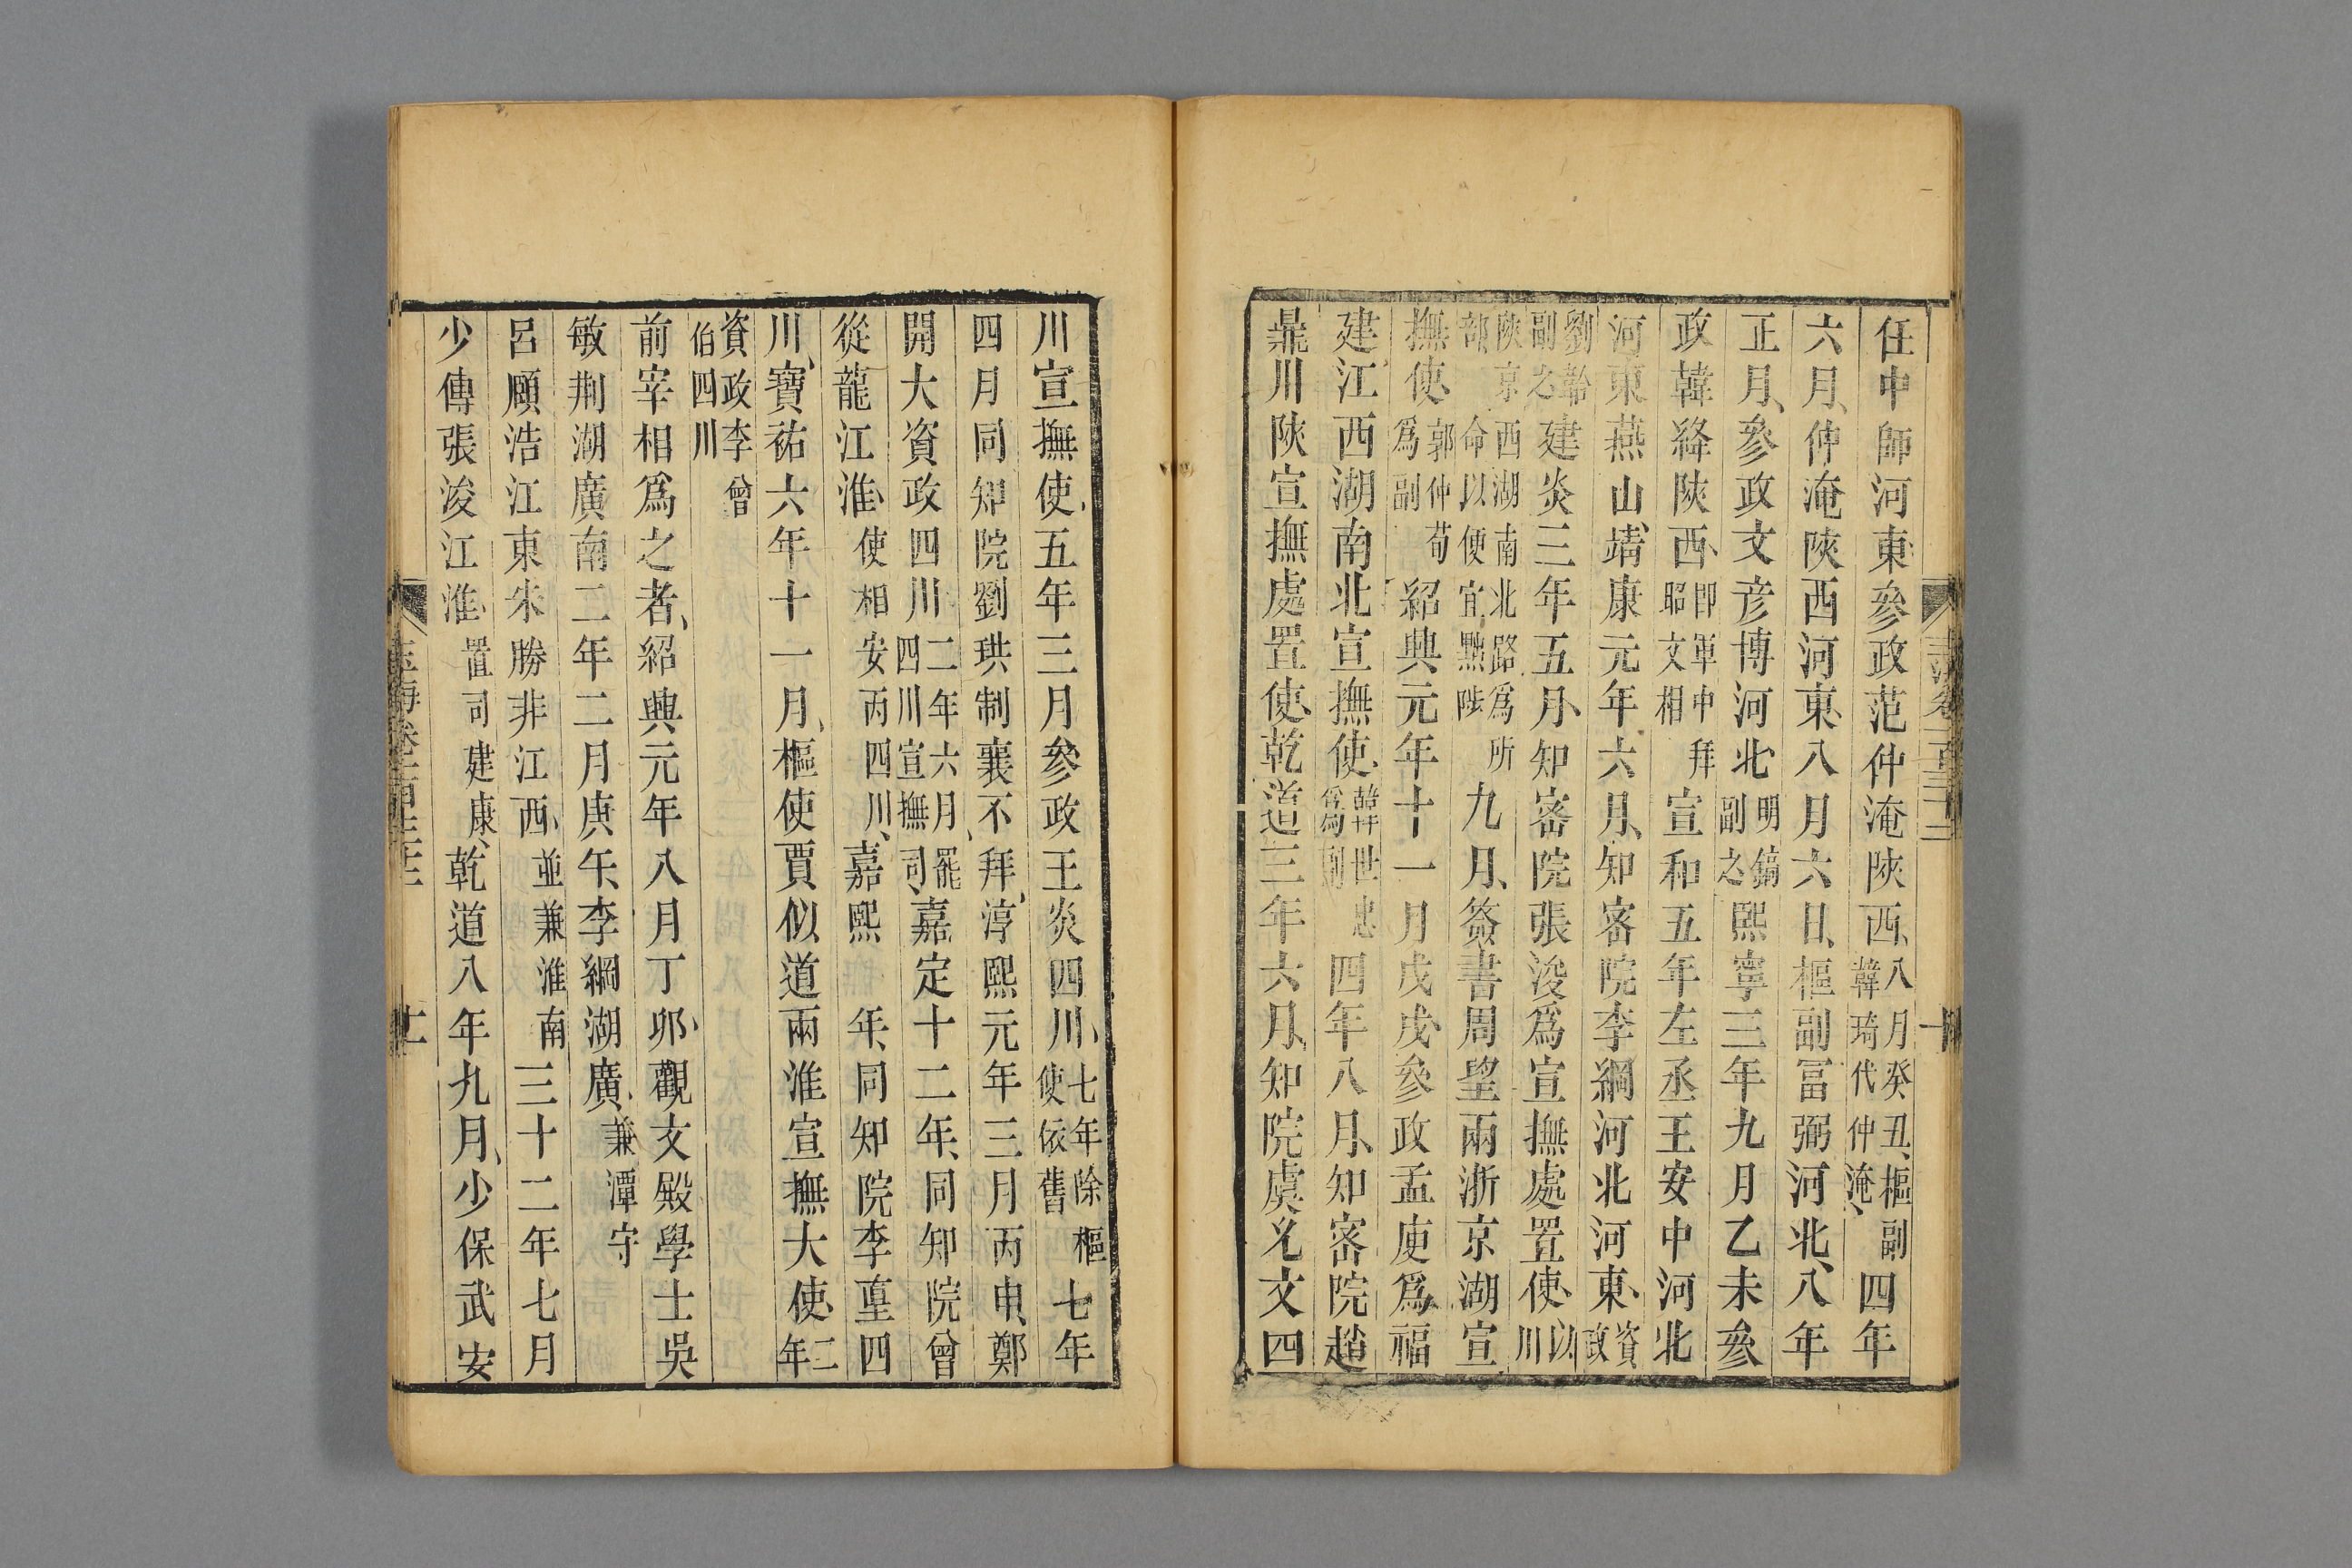 任中師河東參政范仲淹陝西八月癸丑樞副韓琦代仲淹四年
六月仲淹陝西河東八月六日樞副冨弼河北八年
正月參政文彦博河北明鎬副之熙寧三年九月乙未參
政韓絳陝西即軍中拜昭文相宣和五年左丞王安中河北
河東燕山靖康元年六月知密院李綱河北河東資政
劉韐副之建炎三年五月知密院張浚爲宣撫處置使以川
陝京西湖南北路爲所部命以便宜黜陟九月簽書周望兩浙京湖宣
撫使郭仲荀爲副紹興元年十一月戊戌參政孟庾爲福
建江西湖南北宣撫使韓世忠爲副四年八月知密院趙
鼎川陝宣撫處置使乾道三年六月知院虞允文四
川宣撫使五年三月參政王炎四川七年除樞使依舊七年
四月同知院劉珙制襄不拜淳熙元年三月丙申鄭
開大資政四川二年六月罷四川宣撫司嘉定十二年同知院曾
從龍江淮使相安丙四川嘉熙年同知院李𡌴四
川寶祐六年十一月樞使賈似道兩淮宣撫大使二年
資政李曾伯四川
前宰相爲之者紹興元年八月丁卯觀文殿學士吳
敏荆湖廣南二年二月庚午李綱湖廣兼潭守
呂頤浩江東朱勝非江西並兼淮南三十二年七月
少傅張浚江淮置司建康乾道八年九月少保武安
玉海卷一百三十二
十一